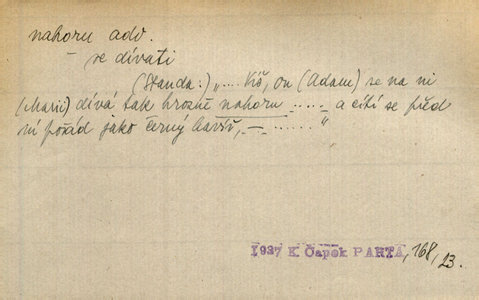 nahoru adv.
— se dívati
(Standa:) „.... Víš, on (Adam) se na ni
(Marii) dívá tak hrozně nahoru ..... a cítí se před
ní pořád jako černý havíř, — ...... “
1937 K. Čapek PARTA, 168, 23.